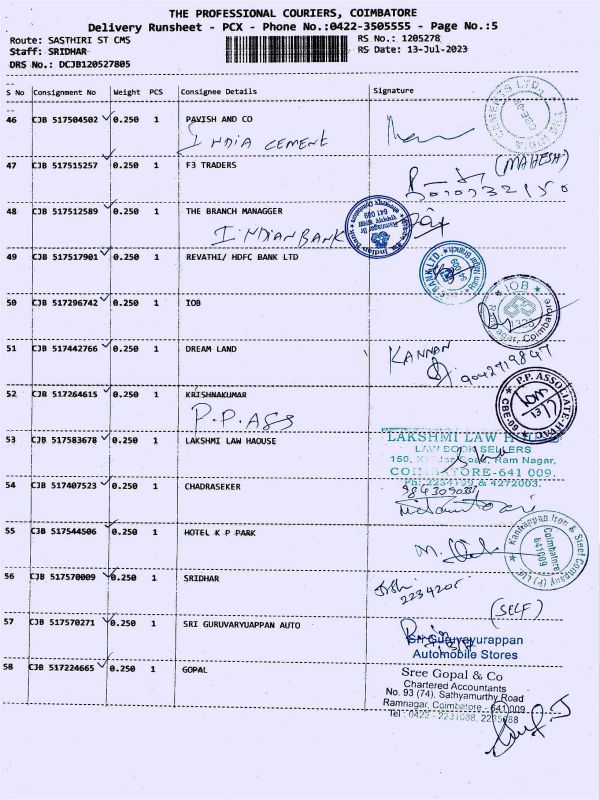 THE PROFESSIONAL COURIERS, COIMBATORE
Delivery Runsheet - PCX - Phone No.:0422-3505555 - Page No.:5
Route: SASTHIRI ST CMS
RS No.: 1205278
Staff: SRIDHAR
RS Date: 13-Jul-2023
DRS No.: DCJB120527805
S No Consignment No Weight PCS Consignee Details Signature
46 CJB 517504502 0.250 1 PAVISH AND CO
INDIA CEMENT
47 CJB 517515257 0.250 1 F3 TRADERS
(MAHESH)
48 CJB 517512589 0.250 1 THE BRANCH MANAGGER
INDIAN BANK
49 CJB 517517901 0.250 1 REVATHI/ HDFC BANK LTD
50 CJB 517296742 0.250 1 IOB
IOB
1328
Coimbatore
51 CJB 517442766 0.250 1 DREAM LAND
KANNAN
9042719847
52 CJB 517264615 0.250 1 KRISHNAKUMAR
P.P. ASS
P.P. ASSOCIATE
CBE-09
53 CJB 517583678 0.250 1 LAKSHMI LAW HAOUSE
LAKSHMI LAW
LAW BOOK SELLERS
150, Road, Ram Nagar,
COIMBATORE-641 009.
Ph: 2234199 & 4272003.
54 CJB 517407523 0.250 1 CHADRASEKER
55 CJB 517544506 0.250 1 HOTEL K P PARK
Kannappan Iron & Steel Company (P) Ltd
Coimbatore
641009
56 CJB 517570009 0.250 1 SRIDHAR
(SELF)
57 CJB 517570271 0.250 1 SRI GURUVARYUAPPAN AUTO
Sri Guruvayurappan
Automobile Stores
58 CJB 517224665 0.250 1 GOPAL
Sree Gopal & Co
Chartered Accountants
No. 93 (74). Sathyamurthy Road
Ramnagar, Coimbatore - 641 009
Tel : 0422 - 2231088,